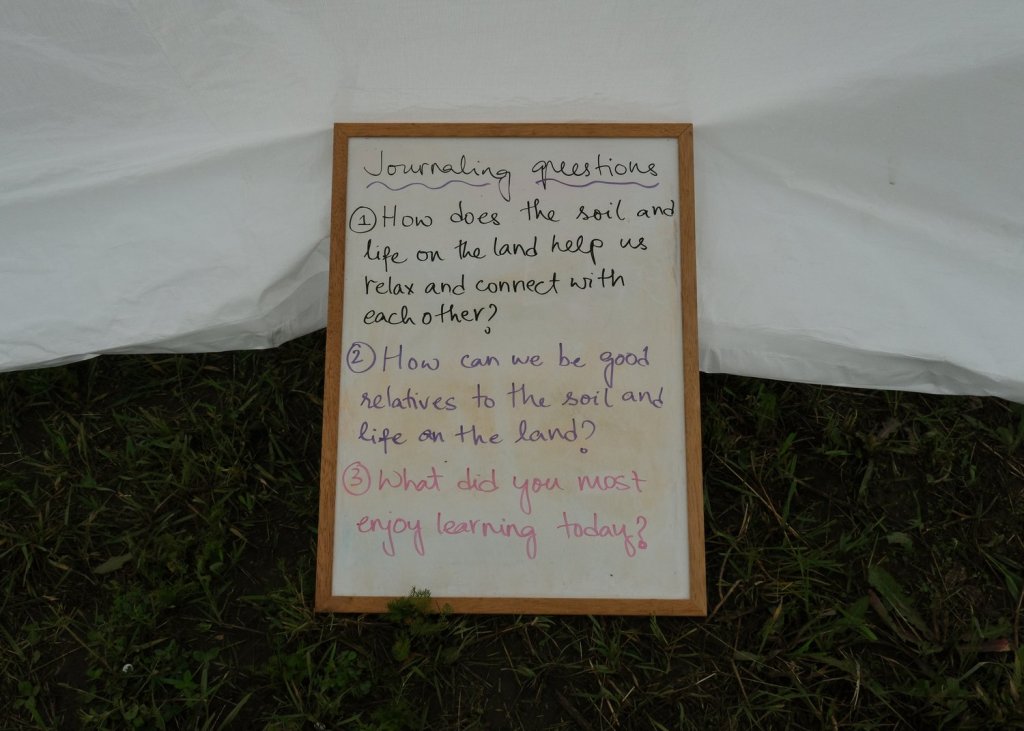 Journaling questions
① How does the soil and
life on the land help us
relax and connect with
each other?
② How can we be good
relatives to the soil and
life on the land?
③ What did you most
enjoy learning today?